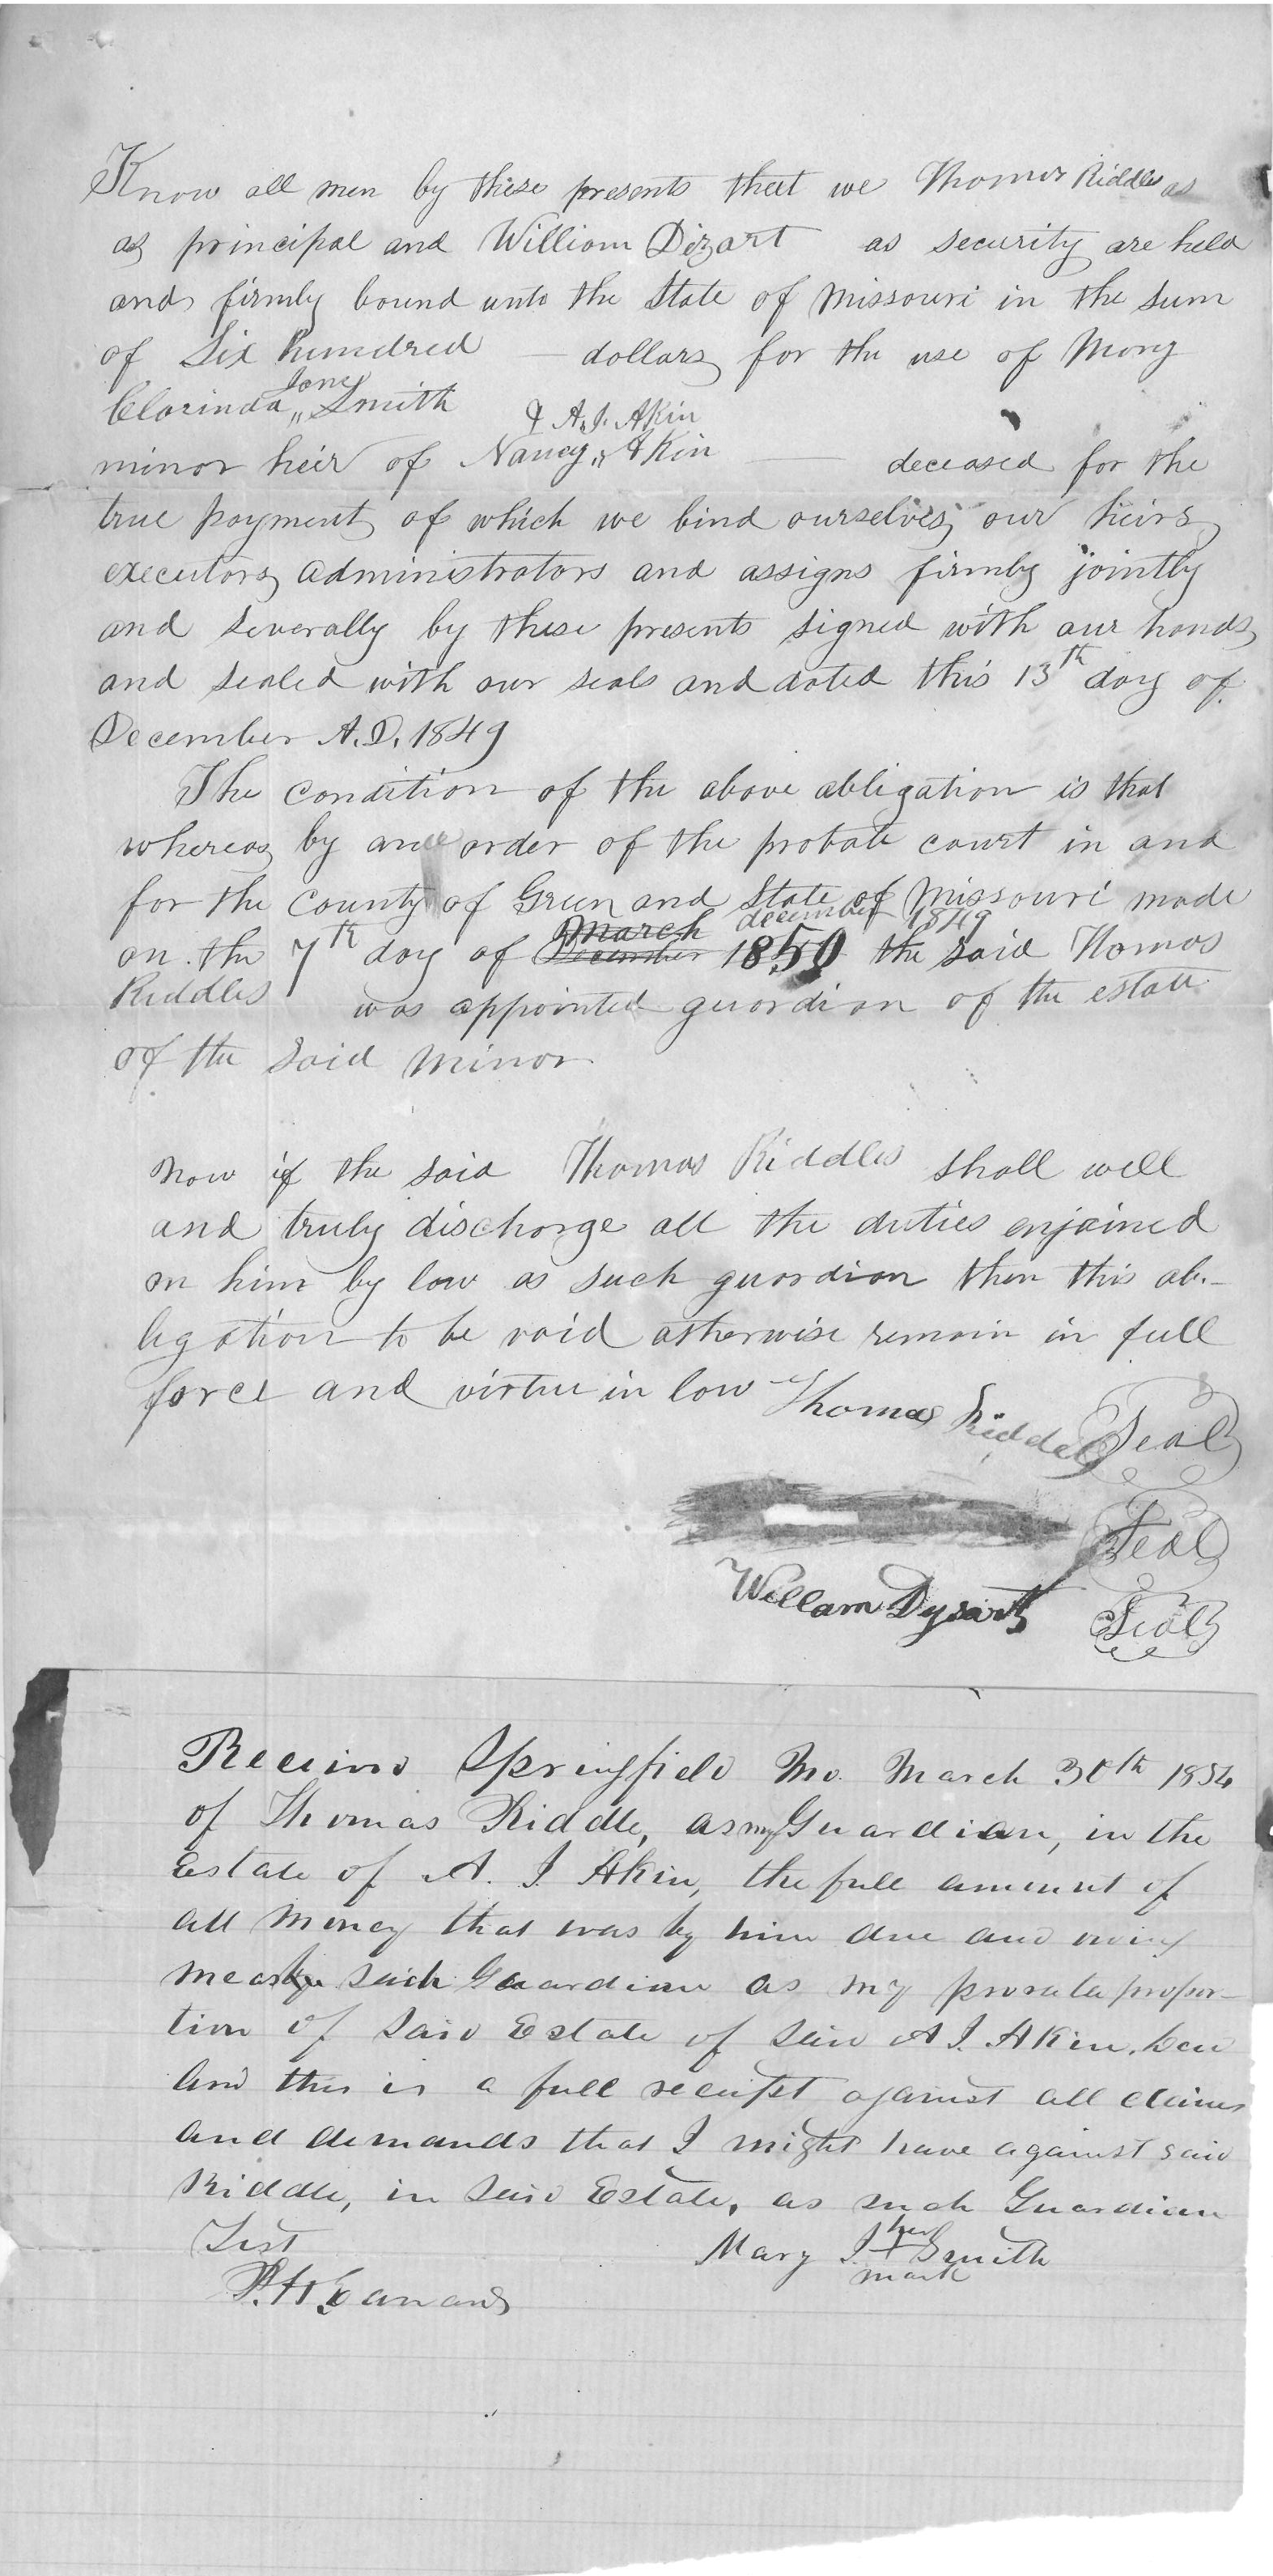 Know all men by these presents that we Thomas Riddles as
as principal and William Dizart as security are held
and firmly bound unto the State of Missouri in the sum
of Six hundred dollars for the use of Mary
Jane
Clarinda " Smith
& A. J. Akin
minor heir of Nancy " Akin deceased for the
true payment of which we bind ourselves our heirs
executors administrators and assigns firmly jointly
and severally by these presents signed with our hands
and sealed with our seals and dated this 13th day of
December A.D. 1849
The condition of the above obligation is that
whereas by an order of the probate court in and
for the county of Green and State of Missouri made
March december 1849
on the 7th day of December 1850 the said Thomas
Riddles was appointed guardian of the estate
of the said minor
Now if the said Thomas Riddles shall well
and truly discharge all the duties enjoined
on him by law as such guardian then this ob-
ligation to be void otherwise remain in full
force and virtue in law Thomas Riddels Seal
Seal
Willam Dysart Seal
Receivd Springfield Mo. March 30th 1854
of Thomas Riddle, as my Guardian, in the
Estate of A. J. Akin, the full amount of
all money that was by him due and owing
me as such Guardian as my prorata propor-
tion of said Estate of said A J. Akin, Decd
And this is a full receipt against all claims
and demands that I might have against said
Riddle, in said Estate, as such Guardian
Test
her
Mary J. + Smith
mark